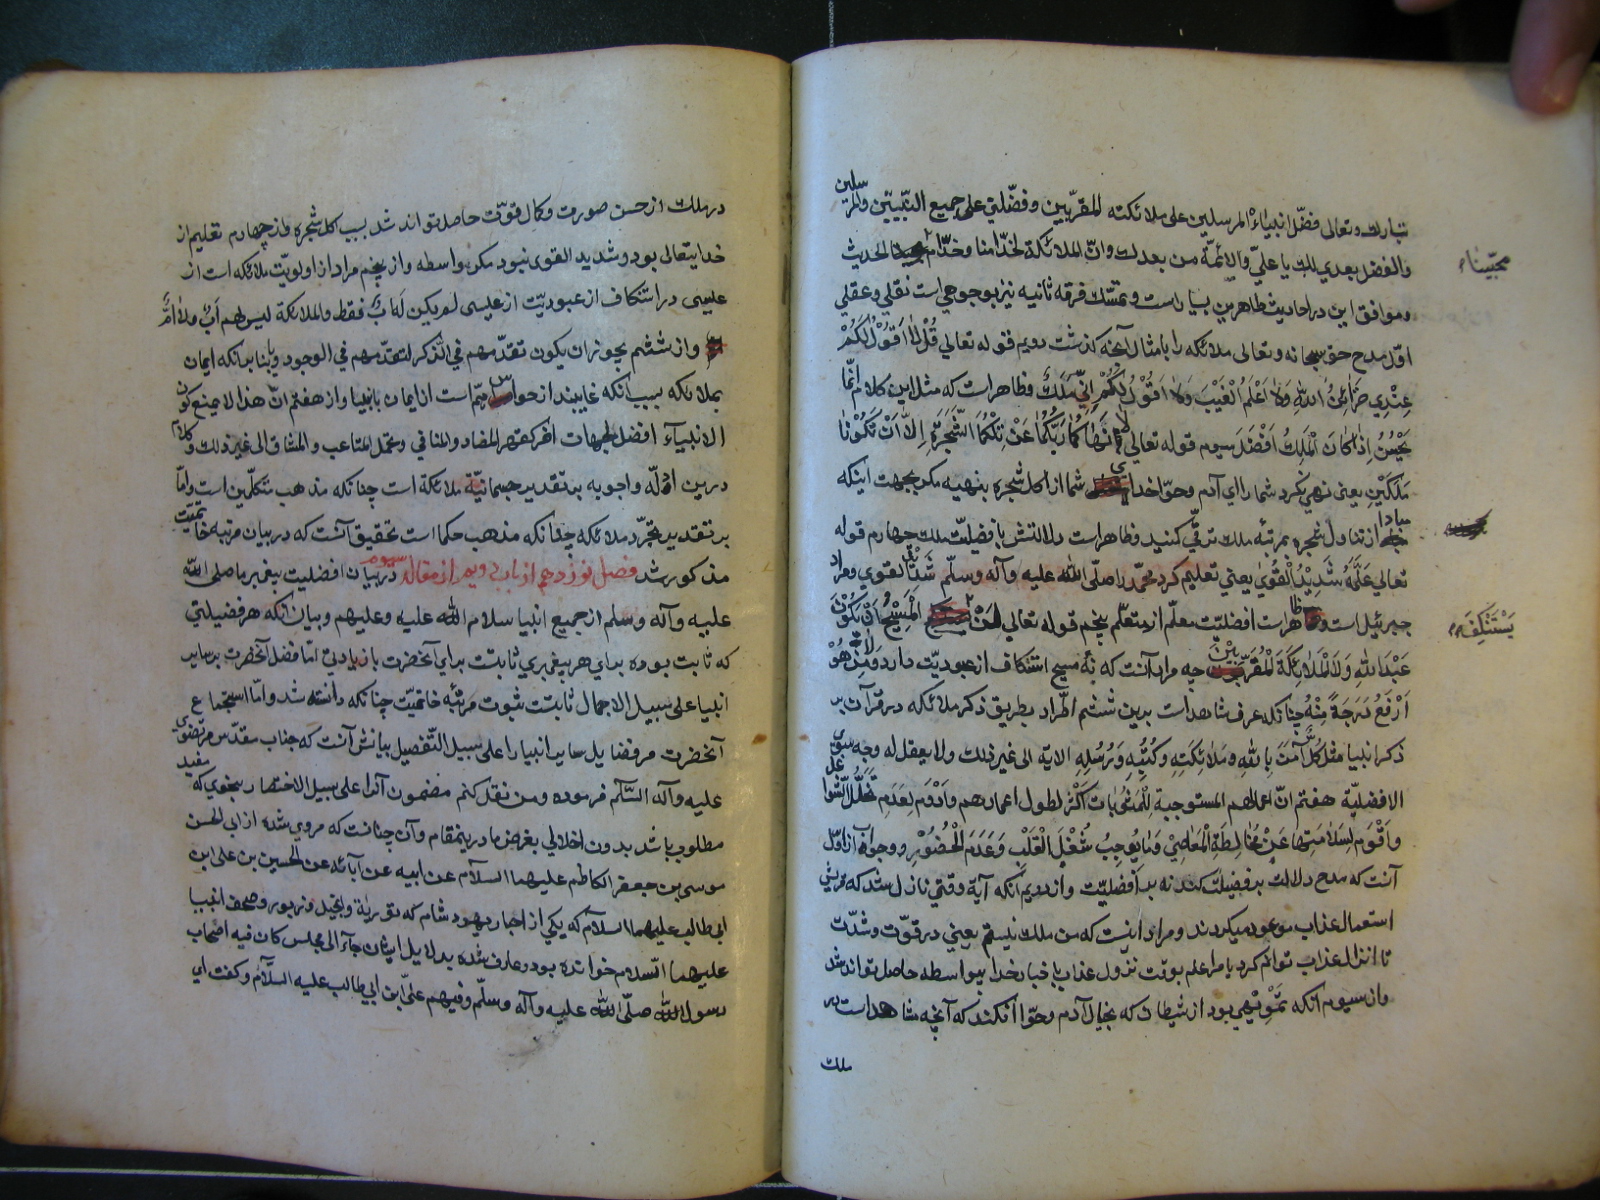 تبارك وتعالى فضّل انبياءُ المرسلين على ملائكته المقرّبين وفضّلني على جميع النبّيّين والمرسلين
والفضل بعدي لك يا عليّ والائمّة من بعدك وانّ الملائكة لخدّامنا وخدّام محبّينا الحديث
وموافق اين در احاديث طاهرين بسيار است وتمسّك فرقه ثانيه نيز بوجوهي است نقلي وعقلي
اوّل مدح حق سبحانه وتعالى ملائكه را بامثال آنچه كذشت دويم قوله تعالي قُلْ لاٰ اَقُوْلُ لَكُمْ
عِنْدِي خَزٰائِنُ اللهِ وَلاٰ اَعْلَمُ الْغَيْبَ وَلاٰ اَقُوْلُ لَكُمْ اِنّي مَلَكٌ وظاهر است كه مثل اين كلام انّما
يَحْسُنُ اِذٰا كٰانَ الْمَلَكُ اَفْضَلَ سيوم قوله تعالي مٰا نَهٰاكُمٰا رَبُّكُمٰا عَنْ تِلْكُمَا الشَّجَرَةِ اِلاّٰ اَنْ تَكُوْنٰا
مَلَكَيْنِ يعني نهي نكرد شما را اي آدم وحوّا خداي شما از اكل شجره بنهيه مكر بجهت اينكه
مبادا از تناول شجره بمرتبهٔ ملك ترقّي كنيد وظاهر است دلالتش بافضليّت ملك چهارم قوله
تعالي عَلَّمَهُ شَدِيْدُ الْقُوىٰ يعني تعليم كرد محمّد را صلّى الله عليه وآله وسلّم شديد القوي ومراد
جبرئيل است وظاهر است افضليّت معلّم از متعلّم پنجم قوله تعالي لَنْ يَسْتَنْكِفَ الْمَسِيْحُ اَنْ يَكُوْنَ
عَبْدًا لِلهِ وَلاَ الْمَلاٰئِكَةُ الْمُقَرَّبُوْنَ چه مراد آنست كه نه مسيح استنكاف از عبوديّت دارد ونه مَنْ هُوَ
اَرْفَعُ دَرَجَةً مِنْهُ چنانكه عرف شاهد است برين ششم اطّراد بطريق ذكر ملائكه در قرآن بر
ذكر انبيا مثل كُلٌّ آمَنَ بِاللهِ وَمَلاٰئِكَتِهِ وَكُتُبِهِ وَرُسُلِهِ الاية الى غير ذلك ولا يعقل له وجه سوى
الافضليّة هفتم انّ اعمالهم المستوجبة لِلْمَثُوبات اَكْثَرُ لطول اعمارهم وَاَدْوَم لِعَدَمِ تَخَلُّلِ الشَّواغل
وَاَقْوَم لِسَلاٰمَتِهٰا عَنْ مُخٰالَطَةِ الْمَعٰاصِيْ وَمٰا يُوجِبُ شُغْلَ الْقَلْبِ وَعَدَمَ الْحُضُوْرِ وجواب از اوّل
آنست كه مدح دلالت بر فضيلت كند نه بر افضليّت واز دويم آنكه آية وقتي نازل شد كه قريش
استعمال عذاب موعود ميكردند ومراد اينست كه من ملك نيستم يعني در قوّت وشدّت
تا انزال عذاب توانم كرد يا مرا علم بوقت نزول عذاب باخبار خدا بيواسطه حاصل تواند شد
واز سيوم آنكه تمويهي بود از شيطان كه بخيال آدم وحوّا افكند كه آنچه مشاهد است در
ملك
محبّينا
يَسْتَنْكِفَ
در ملك از حسن صورت وكمال قوّت حاصل تواند شد بسبب اكل شجره واز چهارم تعليم از
خدايتعالى بود وشديد القوى نبود مكر واسطه واز پنجم مراد از اولويّت ملائكه است از
عيسى در استنكاف از عبوديّت از عيسى لم يكن له ابٌ فقط والملائكة ليس لهم ابٌ ولا اُمٌّ
واز ششم يجوز ان يكون تقدّمهم في الذكر لتقدّمهم في الوجود وبنابر انكه ايمان
بملائكه بسبب انكه غايبند از حواس مهمّ است از ايمان بانبيا واز هفتم انّ هذا لا يمنع كون
الانبيآء افضل لجهات اخر كقهر المضاد والمنافي وتحمّل المتاعب والمشاق الى غير ذلك وكلام
درين ادلّه واجوبه بر تقدير جسمانيّة ملائكة است چنانكه مذهب متكلّمين است وامّا
بر تقدير تجرّد ملائكه چنانكه مذهب حكما است تحقيق آنست كه در بيان مرتبه خاتميّت
مذكور شد فصل نوزدهم از باب دويم از مقاله سيوم در بيان افضليت پيغمبر ما صلى الله
عليه وآله وسلم از جميع انبيا سلام الله عليه وعليهم وبيان انكه هر فضيلتي
كه ثابت بوده براي هر پيغمبري ثابتست براي آنحضرت با زيادتي امّا فضل آنحضرت بر ساير
انبيا على سبيل الاجمال ثابتست بثبوت مرتبه خاتميّت چنانكه دانسته شد وامّا استجماع
آنحضرت مر فضايل ساير انبيا را على سبيل التّفصيل بيانش آنست كه جناب مقدّس مرتضوي
عليه وآله السّلام فرموده ومن نقل كنم مضمون آنرا على سبيل الاختصار بنحوي كه مفيد
مطلوب باشد بدون اخلالي بغرض ما درينمقام وآن چنانست كه مروي شده از ابي الحسن
موسى بن جعفر الكاظم عليهما السلام عن ابيه عن آبائه عن الحسين بن على ابن
ابي طالب عليهما السلام كه يكي از احبار يهود شام كه تورية وانجيل وزبور وصحف انبيا
عليهم السّلام خوانده بود وعارف شده بدلايل ايشان جاءَ الى مجلس كان فيه اصحاب
رسول الله صلّى الله عليه وآله وسلّم وفيهم علىّ ابن ابي طالب عليه السّلام وكفت اي